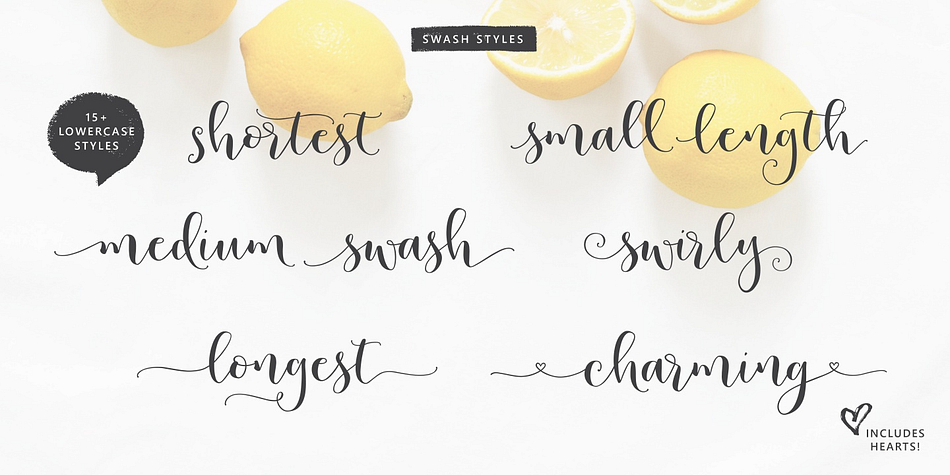 SWASH STYLES
15+
LOWERCASE
STYLES
shortest
small length
medium swash
swirly
longest
charming
INCLUDES
HEARTS!